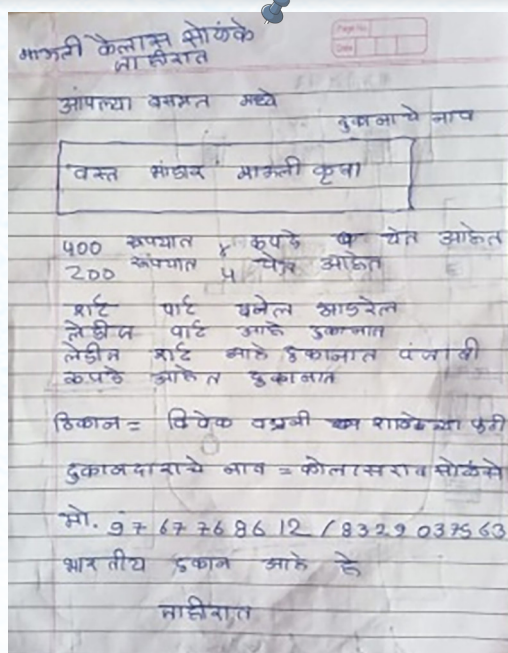 माऊली कैलास सोळंके
जाहीरात
Page No.
Date
आपल्या वसमत मध्ये
दुकानाचे नाव
वस्त्र भांडार माऊली कृपा
500 रूपयात ४ कपडे येत आहेत
200 रूपयात ५ येत आहेत
शर्ट पार्ट
लेडीज पार्ट आहे दुकानात
लेडीज शर्ट आहे दुकानात पंजाबी
कपडे आहेत दुकानात
ठिकान = विवेक
दुकानदाराचे नाव = कोलासराव सोळंके
मो. 9767768612 / 8329037563
भारतीय दुकान आहे हे
जाहीरात